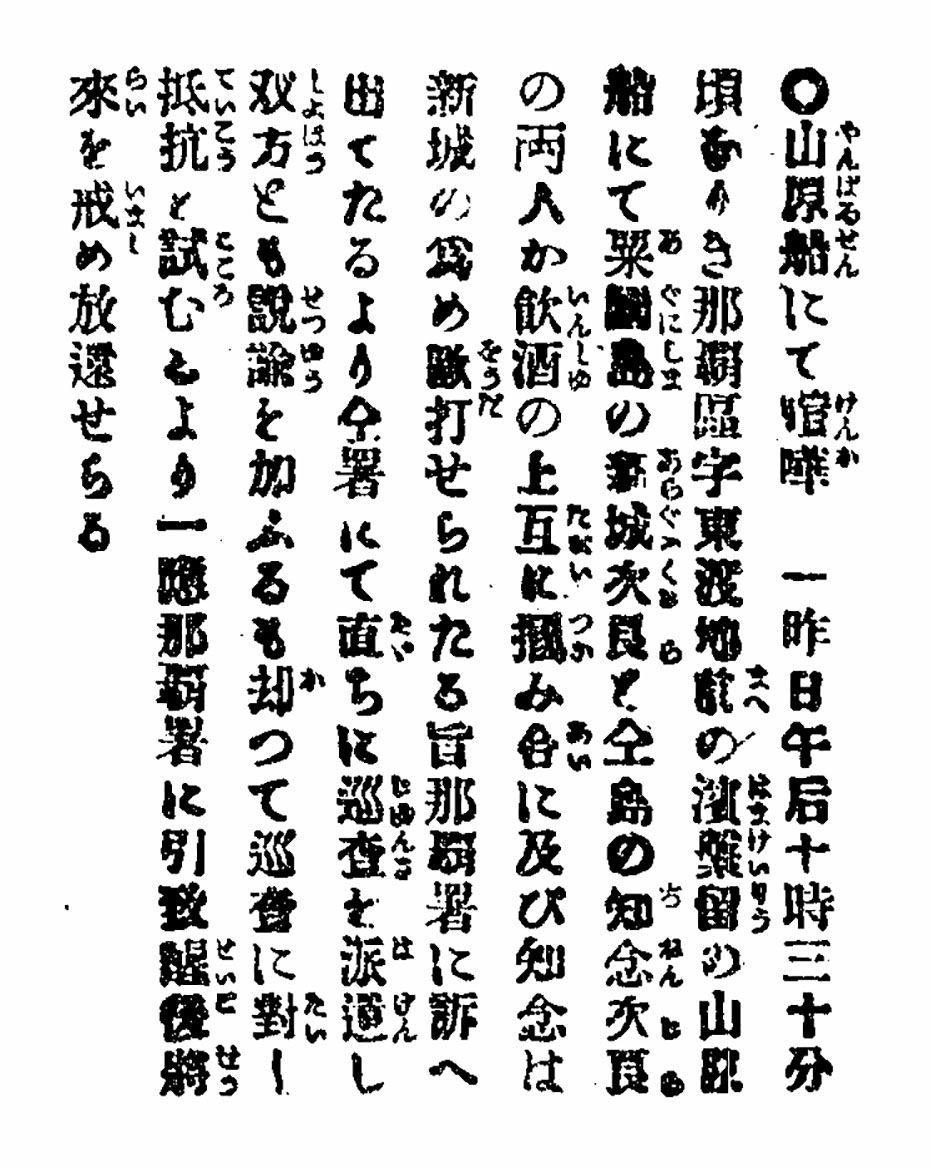 ○山原船にて喧嘩　一昨日午后十時三十分
頃なりき那覇區字東渡地前の濱繋留の山原
船にて粟國島の新城次良と仝島の知念次良
の両人か飲酒の上互に摑み合に及び知念は
新城の為め毆打せられたる旨那覇署に訴へ
出てたるより仝署にて直ちに巡査を派遣し
双方とも説諭を加ふるも却つて巡査に對し
抵抗を試むるより一應那覇署に引致醒後將
來を戒め放還せらる